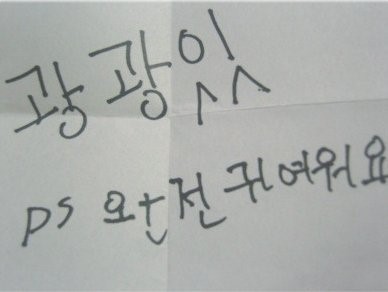 광광있
PS 완전 귀여워요